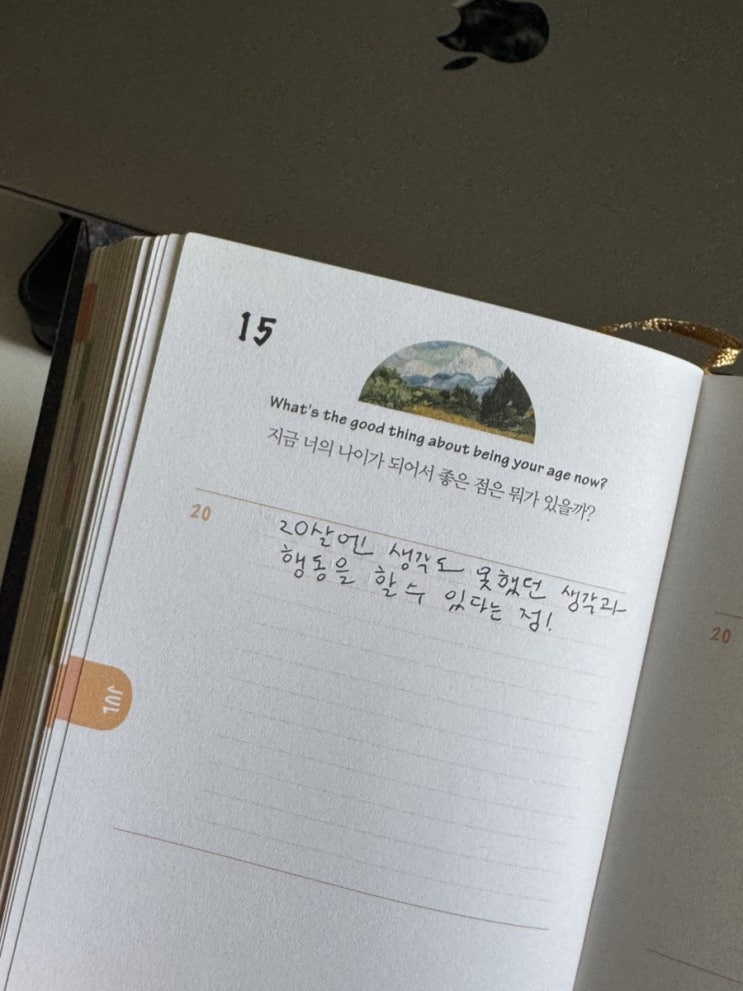 15
What's the good thing about being your age now?
지금 너의 나이가 되어서 좋은 점은 뭐가 있을까?
20
20살엔 생각도 못했던 생각과
행동을 할 수 있다는 점!
JUL
20